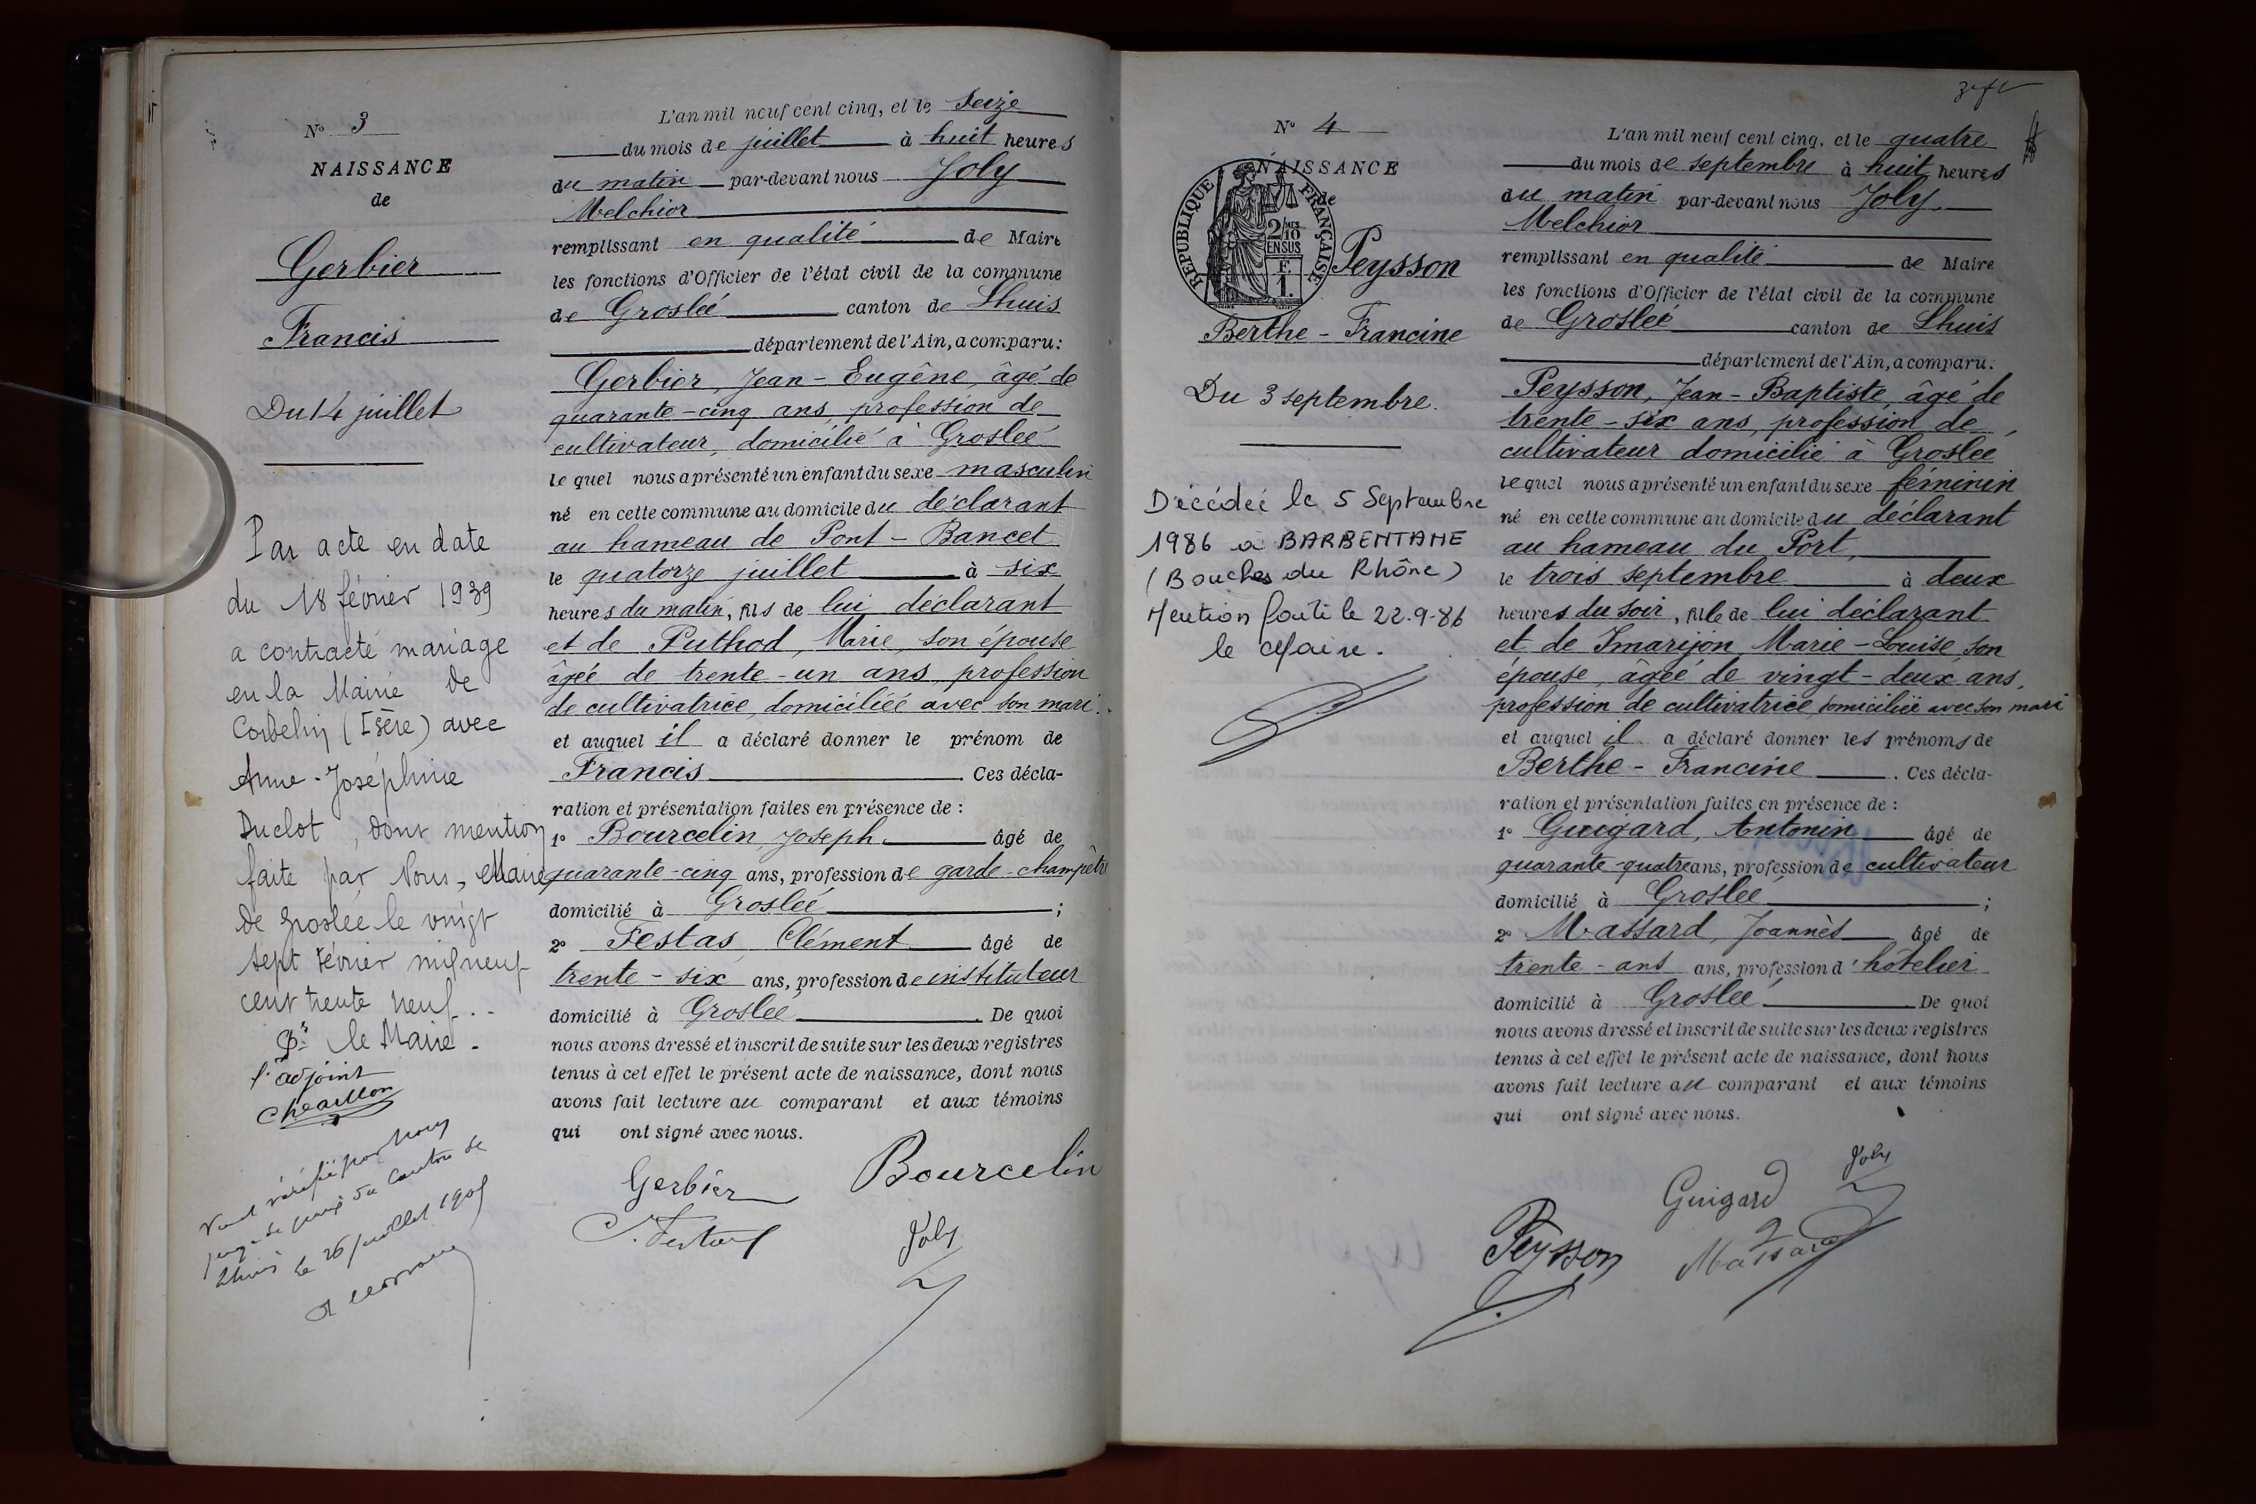 N° 3
NAISSANCE
de
Gerbier
Francis
Du 14 juillet
Par acte en date
du 18 février 1939
a contracté mariage
en la Mairie de
Corbelin (Isère) avec
Anne-Joséphine
Duclot, dont mention
faite par Nous, Maire
de Groslée le vingt
sept février mil neuf
cent trente neuf.
Pr le Maire.
l'adjoint
Vu et vérifié par Nous
juge de paix du Canton de
Lhuis le 26 juillet 1905
L'an mil neuf cent cinq, et le seize
du mois de juillet à huit heures
du matin par-devant nous Joly
Melchior
remplissant en qualité de Maire
les fonctions d'Officier de l'état civil de la commune
de Groslée canton de Lhuis
département de l'Ain, a comparu:
Gerbier, Jean-Eugène, âgé de
quarante-cinq ans, profession de
cultivateur, domicilié à Groslée
lequel nous a présenté un enfant du sexe masculin
né en cette commune au domicile du déclarant
au hameau de Pont-Bancet
le quatorze juillet à six
heures du matin, fils de lui déclarant
et de Puthod, Marie, son épouse
âgée de trente-un ans, profession
de cultivatrice, domiciliée avec son mari.
et auquel il a déclaré donner le prénom de
Francis. Ces décla-
ration et présentation faites en présence de :
1° Bourcelin, Joseph âgé de
quarante-cinq ans, profession de garde-champêtre
domicilié à Groslée ;
2° Festas, Clément âgé de
trente-six ans, profession de instituteur
domicilié à Groslée. De quoi
nous avons dressé et inscrit de suite sur les deux registres
tenus à cet effet le présent acte de naissance, dont nous
avons fait lecture au comparant et aux témoins
qui ont signé avec nous.
Gerbier Bourcelin
C. Festas Joly
N° 4
NAISSANCE
de
RÉPUBLIQUE FRANÇAISE
2/10
EN SUS
F.
1.
Peysson
Berthe-Francine
Du 3 septembre.
Décédée le 5 Septembre
1986 à BARBENTANE
(Bouches du Rhône)
Mention faite le 22.9.86
le Maire.
L'an mil neuf cent cinq, et le quatre
du mois de septembre à huit heures
du matin par-devant nous Joly
Melchior
remplissant en qualité de Maire
les fonctions d'Officier de l'état civil de la commune
de Groslée canton de Lhuis
département de l'Ain, a comparu:
Peysson, Jean-Baptiste, âgé de
trente-six ans, profession de
cultivateur domicilié à Groslée
lequel nous a présenté un enfant du sexe féminin
né en cette commune au domicile du déclarant
au hameau du Port,
le trois septembre à deux
heures du soir, fille de lui déclarant
et de Imarijon, Marie-Louise son
épouse, âgée de vingt-deux ans,
profession de cultivatrice domiciliée avec son mari
et auquel il a déclaré donner les prénoms de
Berthe-Francine. Ces décla-
ration et présentation faites en présence de :
1° Guigard, Antonin âgé de
quarante-quatre ans, profession de cultivateur
domicilié à Groslée ;
2° Massard, Joannès âgé de
trente-ans ans, profession d'hôtelier
domicilié à Groslée. De quoi
nous avons dressé et inscrit de suite sur les deux registres
tenus à cet effet le présent acte de naissance, dont nous
avons fait lecture au comparant et aux témoins
qui ont signé avec nous.
Joly
Guigard
Peysson Massard